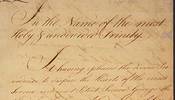 In the Name of the most
Holy & undivided Trinity.
It having pleased the Divine Pro
vidence to dispose the Hearts of the most
Serene and most Potent Prince George the